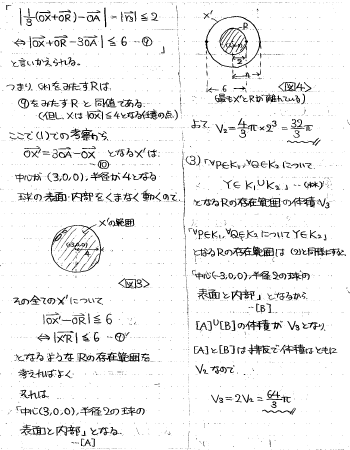 「
|1/3(OX+OR)-OA| = |YS| ≦ 2
⇔ |OX+OR-3OA| ≦ 6 …⑨
と言いかえられる。
つまり (*)をみたすRは、
⑨をみたすRと同値である。
(但し、Xは |OX|≦4となる任意の点)
ここで(1)での考察から、
OX' = 3OA-OX となるX'は
…⑩
中心が (3,0,0), 半径が4となる
球の表面・内部をくまなく動くので
X'の範囲
(3,0,0)
4
<図3>
その全てのX'について
|OX'-OR| ≦ 6
⇔ |X'R| ≦ 6 …⑨'
となるような Rの存在範囲を
考えればよく
それは
「中心(3,0,0), 半径2の球の
表面と内部」となる
…[A]
X'
R
2
4
6
<図4>
(最もX'とRが離れている)
よって V₂ = 4/3 π×2³ = 32/3 π
(3) 「∀P∈K₁, ∀Q∈K₂ について
Y∈K₁∪K₂」…(**)
となるRの存在範囲の体積V₃
「∀P∈K₁, ∀Q∈K₂ について Y∈K₂」
となるRの存在範囲は (2)と同様にすると、
「中心(-3,0,0), 半径2の球の
表面と内部」となるから
…[B]
[A]∪[B]の体積が V₃となり
[A]と[B]は排反で体積はともに
V₂なので
V₃ = 2V₂ = 64/3 π